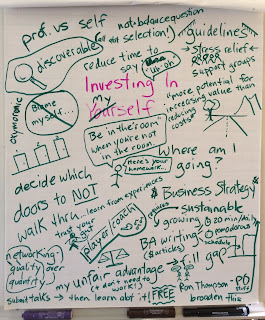 prof. vs self
not-balance question
guidelines
discoverable
selection!
reduce time to
say "Uh-Oh"
stress relief
support groups
Investing In
my
Yourself
oxymoronic
Blame
myself...
more potential for
increasing value than
reducing
costs
Be in the room
when you're not
in the room.
Here's your
homework...
Where am I
going?
decide which
doors to NOT
walk thru...
learn from experiences
trust your
gut
Player/coach
$ Business Strategy $
requires
sustainable
growing
20 min/day
pomodoros
schedule
BA writing
(articles)
fill gap?
networking
quality over
quantity
my unfair advantage
(+ don't need to
work!)
submit talks → then learn abt it!
FREE
Ron Thompson - PD
broaden this